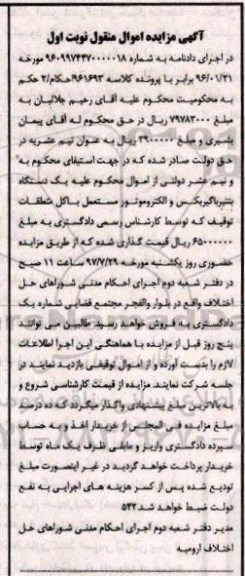 آگهی مزایده اموال منقول نوبت اول
در اجرای دادنامه به شماره ۹۶۰۹۹۷۴۴۷۰۰۰۰۰۱۸ مورخه
۹۶/۰۱/۲۱ برابر با پرونده کلاسه ۹۶۱۶۹۳احکام/۲ حکم
به محکومیت محکوم علیه آقای رحیم جلالیان به
مبلغ ۷۹۷۸۳۰۰۰ ریال در حق محکوم له آقای پیمان
بشیری و مبلغ ۲۹۰۰۰۰۰ ریال به عنوان نیم عشریه در
حق دولت صادر شده که در جهت استیفای محکوم به
و نیم عشر دولتی از اموال محکوم علیه یک دستگاه
پنیرپاگیربکس و الکتروموتور مستعمل باکل متعلقات
توقیف که توسط کارشناس رسمی دادگستری به مبلغ
۶۵۰۰۰۰۰۰ ریال قیمت گذاری شده که از طریق مزایده
حضوری روز یکشنبه مورخه ۹۷/۷/۲۹ ساعت ۱۱ صبح
در دفتر شعبه دوم اجرای احکام مدنی شوراهای حل
اختلاف واقع در بلوار والفجر مجتمع قضایی شماره یک
دادگستری به فروش خواهد رسید طالبین می توانند
پنج روز قبل از مزایده با هماهنگی این اجرا اطلاعات
لازم را بدست آورده و از اموال توقیفی بازدید نمایند در
جلسه شرکت نمایند مزایده از قیمت کارشناسی شروع و
به بالاترین مبلغ پیشنهادی واگذار میگردد که ده درصد
مبلغ مزایده فی المجلس از خریدار اخذ و به حساب
سپرده دادگستری واریز و مابقی ظرف یک ماه توسط
خریدار پرداخت خواهد گردید در غیر اینصورت مبلغ
تودیع شده پس از کسر هزینه های اجرایی به نفع
دولت ضبط خواهد شد ۵۴۲
مدیر دفتر شعبه دوم اجرای احکام مدنی شوراهای حل
اختلاف ارومیه